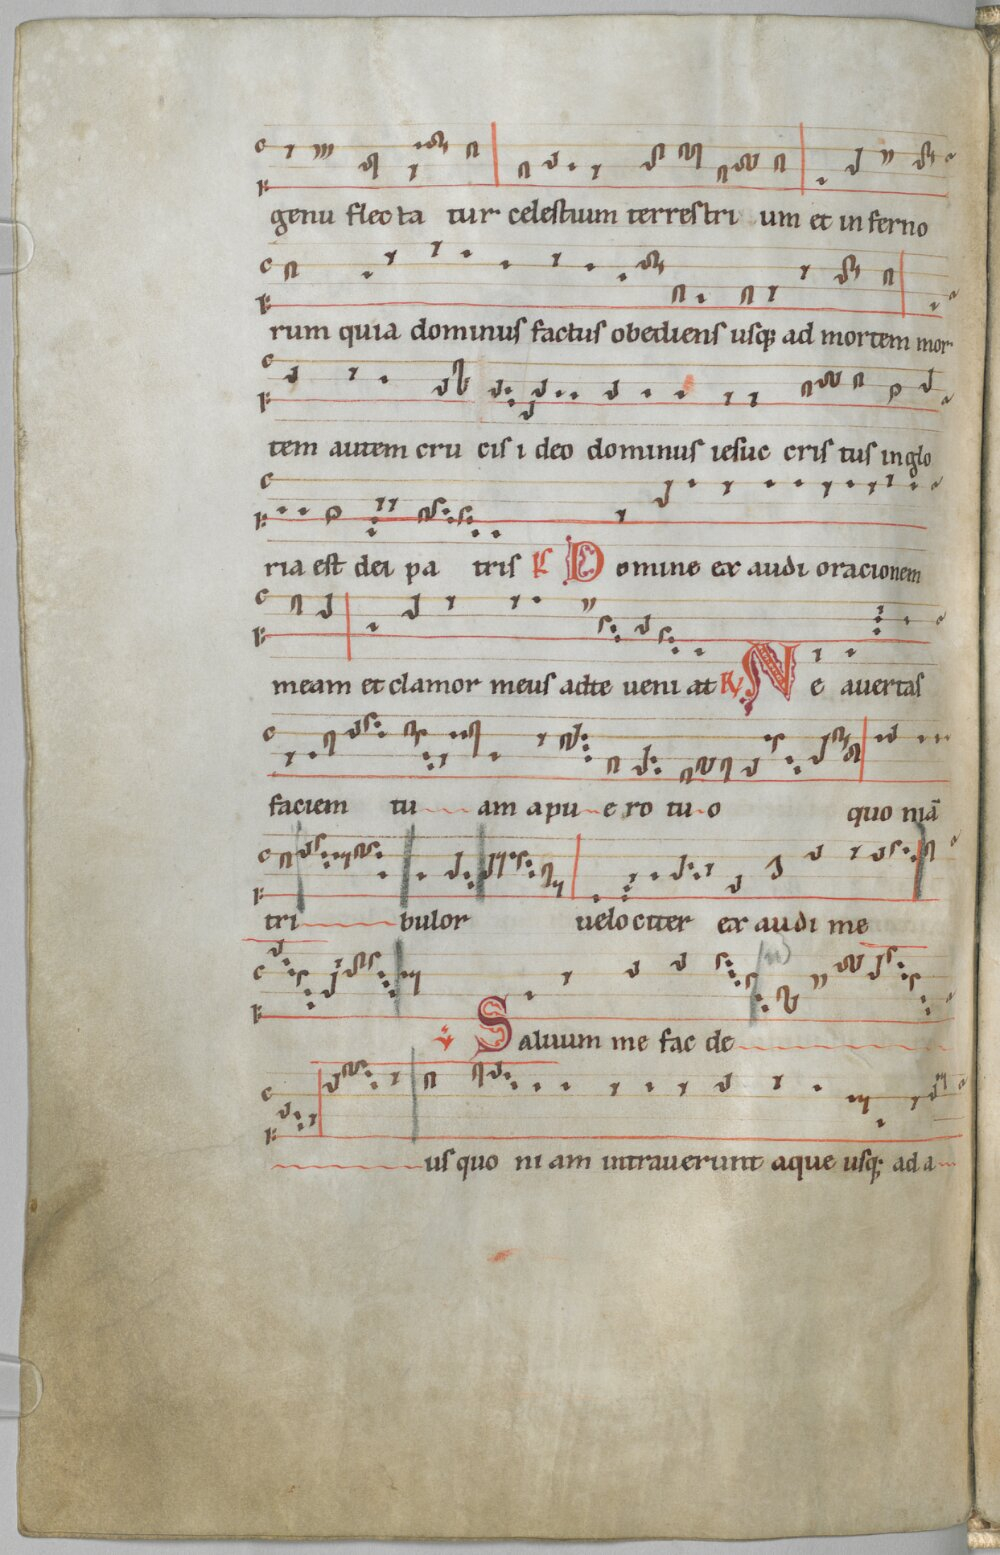 genu flecta tur celestium terrestri um et in ferno
rum quia dominus factus obediens usq; ad mortem mor
tem autem cru cis i deo dominus iesuc cris tus in glo
ria est dei pa tris Domine ex audi oracionem
meam et clamor meus adte veni at Ne avertas
faciem tu am a pu e ro tu o quo niā
tri bulor velociter ex audi me
Salvum me fac de
us quo ni am intraverunt aque usq; ad a